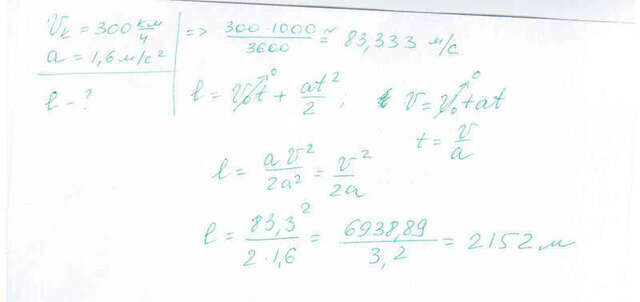 Vk = 300 км/ч => 300·1000/3600 ≈ 83,333 м/с
a = 1,6 м/с²
l - ?
l = V₀t⁰ + at²/2, v = v₀⁰ + at
t = v/a
l = a v²/2a² = v²/2a
l = 83,3²/2·1,6 = 6938,89/3,2 = 2152 м